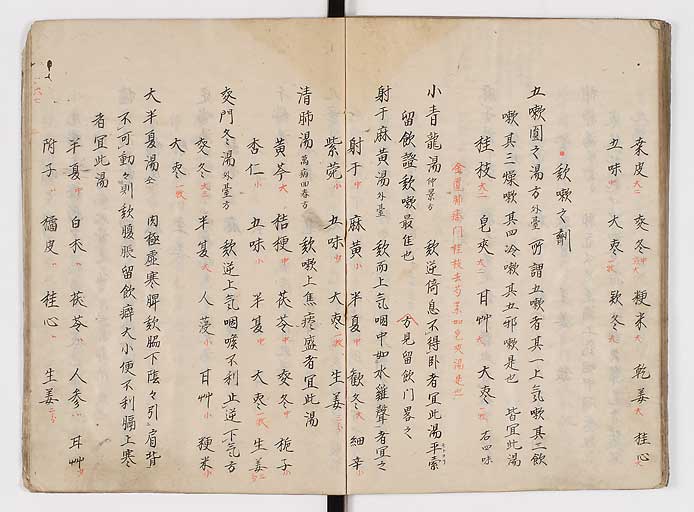 桒皮大二 麥冬中六大 粳米大 乾姜大 桂心大
五味中 大枣一枚 欵冬大
欬嗽之劑
五嗽圓之湯方外臺方 所謂五嗽者其一上氣嗽其二飲
嗽其三燥嗽其四冷嗽其五邪嗽是也 皆宜此湯
桂枝大二 皂夾大二 甘艸大 大枣一枚 右四味
金匱肺痿門桂枝去芍薬加皂夾湯是也
小青龍湯仲景方 欬逆倚息不得卧者宜此湯平素
留飲證欬嗽最佳也 方見留飲门畧之
射干麻黄湯外臺 欬而上气咽中如水雞聲者宜之
射干中 麻黄小 半夏中 歓冬大 細辛小
紫菀小 五味中 大枣一枚 生姜二分
清肺湯萬病回春方 欬嗽上焦痰盛者宜此湯
黄芩大 桔梗中 茯苓中 麥冬中 梔子小
杏仁小 五味小 半夏中 大枣一枚 生姜二分
麥門冬湯外臺方 欬逆上气咽喉不利止逆下气方
麥冬大二 半夏大 人蓡小 甘艸小 粳米小
大枣一枚
大半夏湯仝 肉極虚寒脾欬脇下陰々引肩背
不可動々則欬腹脹留飲癖大小便不利膈上寒
者宜此湯
半夏中 白朮 茯苓 人参 甘艸少
附子 橘皮 桂心 生姜二分